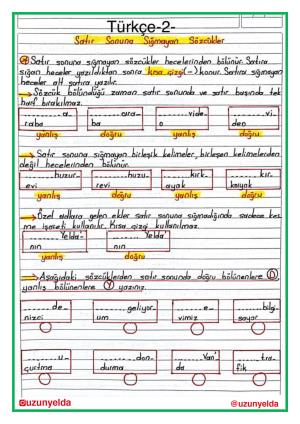 Türkçe-2-
Satır Sonuna Sığmayan Sözcükler
Satır sonuna sığmayan sözcükler hecelerinden bölünür. Satıra
sığan heceler yazıldıktan sonra kısa çizgi(-) konur. Satıra sığmayan
heceler alt satıra yazılır.
→ Sözcük bölündüğü zaman satır sonunda ve satır başında tek
harf bırakılmaz.
........a- ........ara- ........vide- ........vi-
raba ba o deo
yanlış doğru yanlış doğru
→ Satır sonuna sığmayan birleşik kelimeler, birleşen kelimelerden
değil hecelerinden bölünür.
........huzur- ........huzu- ........kırk- ........kır-
evi revi ayak kayak
yanlış doğru yanlış doğru
→ Özel adlara gelen ekler satır sonuna sığmadığında sadece kes
me işareti kullanılır. Kısa çizgi kullanılmaz.
........Yelda'- ........Yelda'
nın nın
yanlış doğru
→ Aşağıdaki sözcüklerden satır sonunda doğru bölünenlere D,
yanlış bölünenlere Y yazınız.
........de- ........geliyor- ........e- ........bilg-
nizci um vimiz sayar
........u- ........don- ........Van' ........tra-
çurtma durma da fik
@uzunyelda @uzunyelda